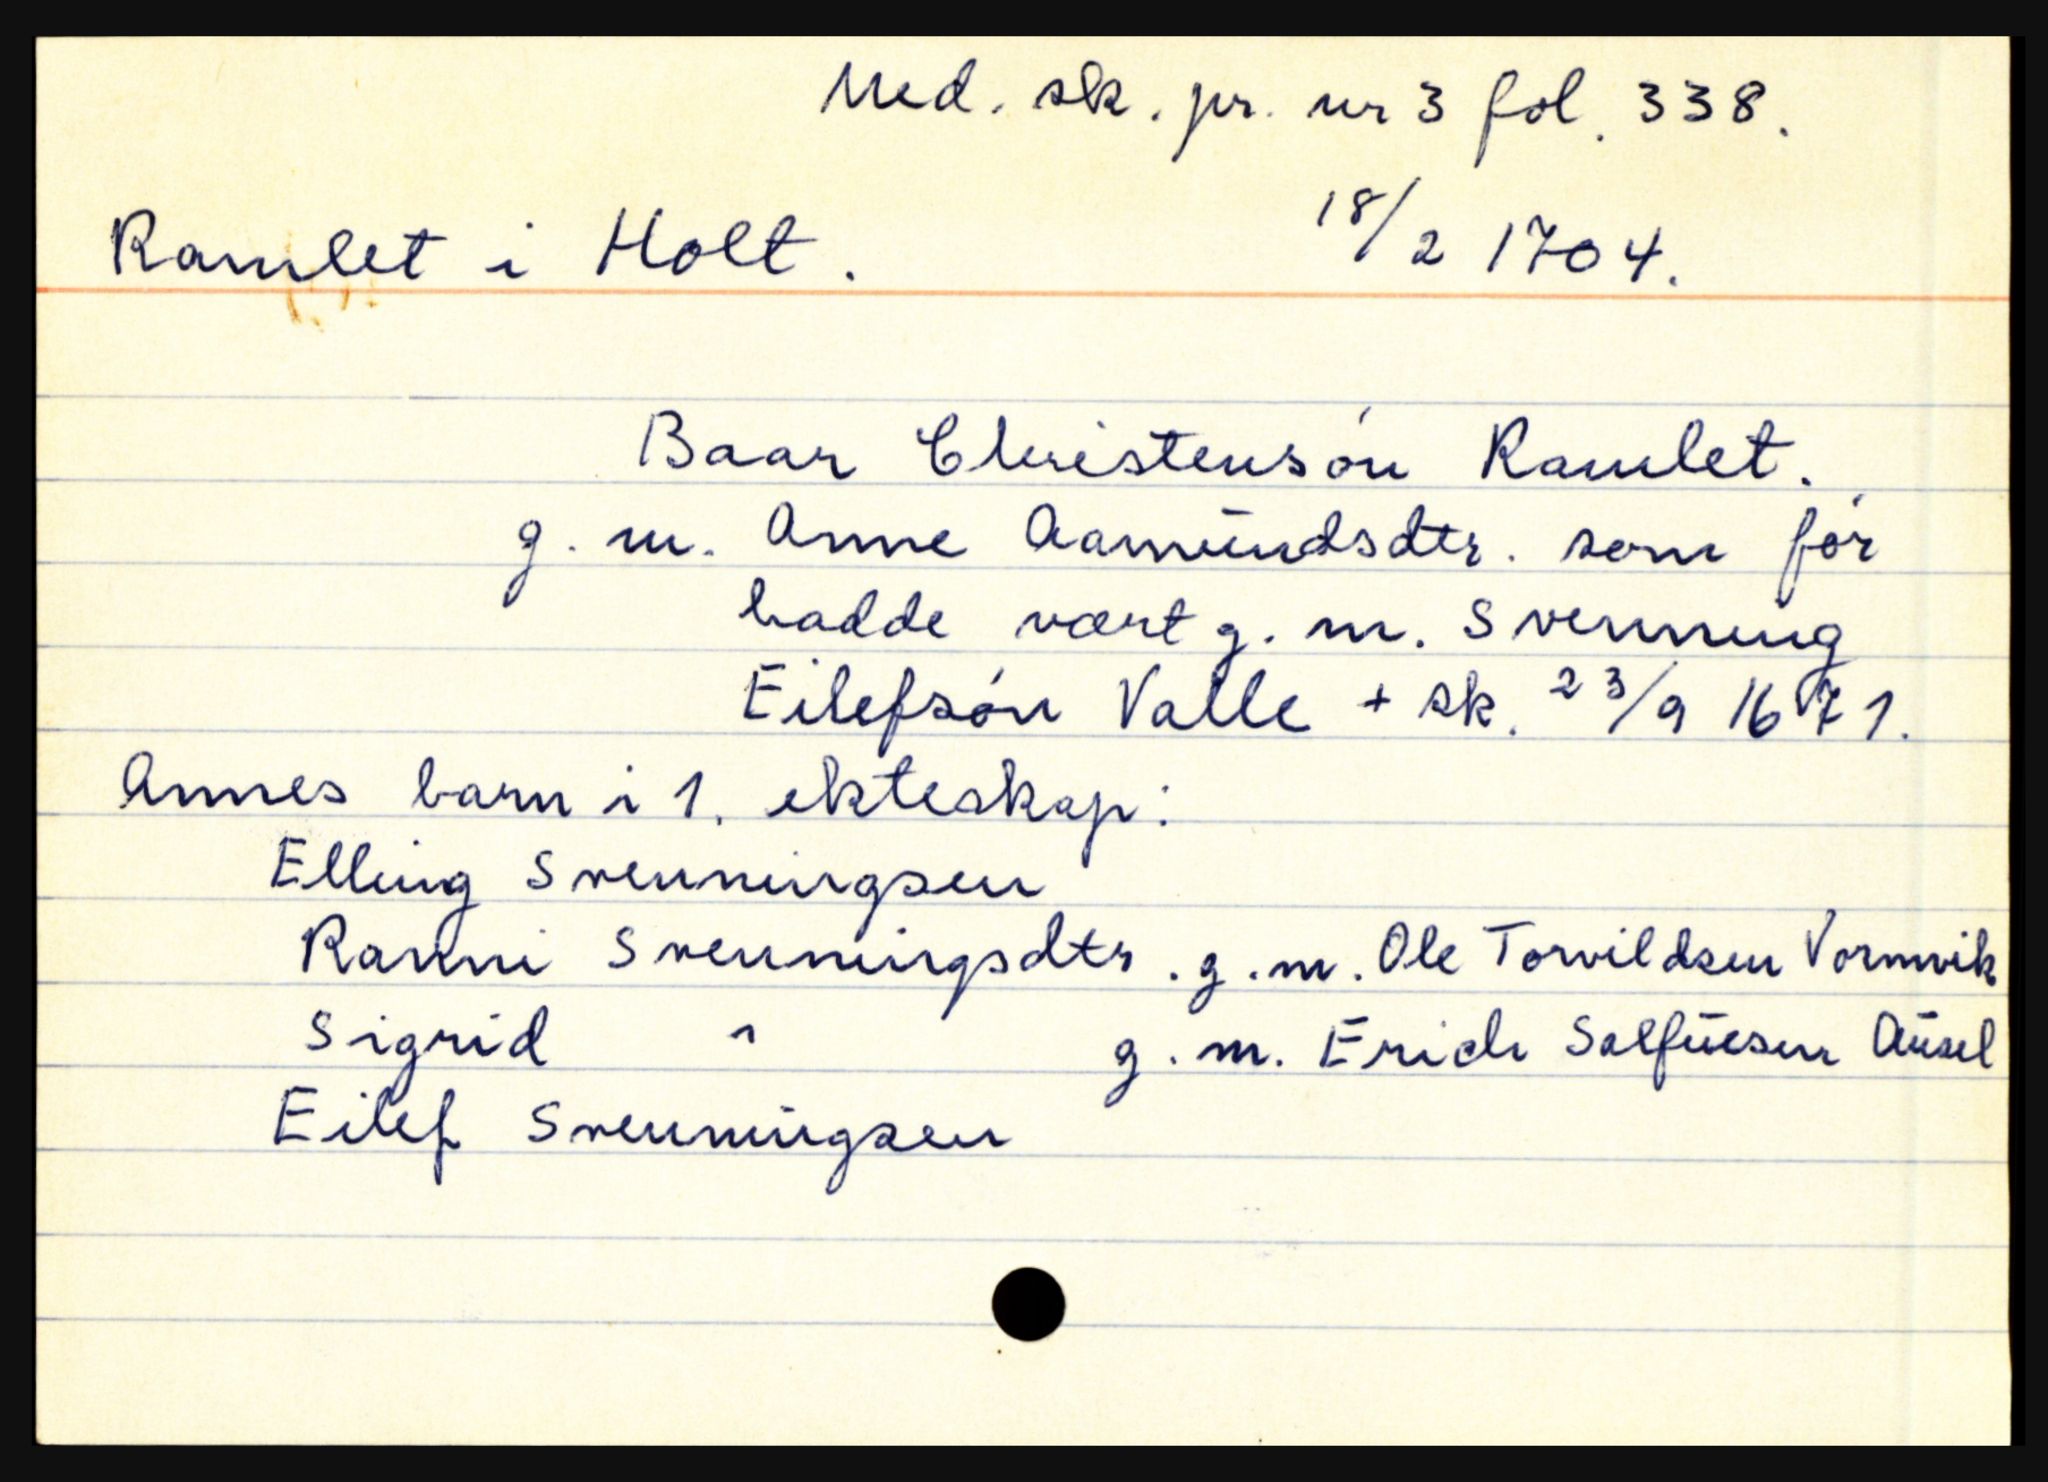 Ned. sk. pr. nr 3 fol. 338.
Ramlet i Holt. 18/2 1704.
Baar Christensón Ramlet.
g. m. Anne Aamundsdtr. som fór
hadde vært g. m. Svenning
Eilefsón Valle + sk. 23/9 1671.
Annes barn i 1. ekteskap:
Elling Svenningsen
Ranni Svenningsdtr. g. m. Ole Torvildsen Vormvik
Sigrid " g. m. Erich Salfuesen Ausel
Eilef Svenningsen